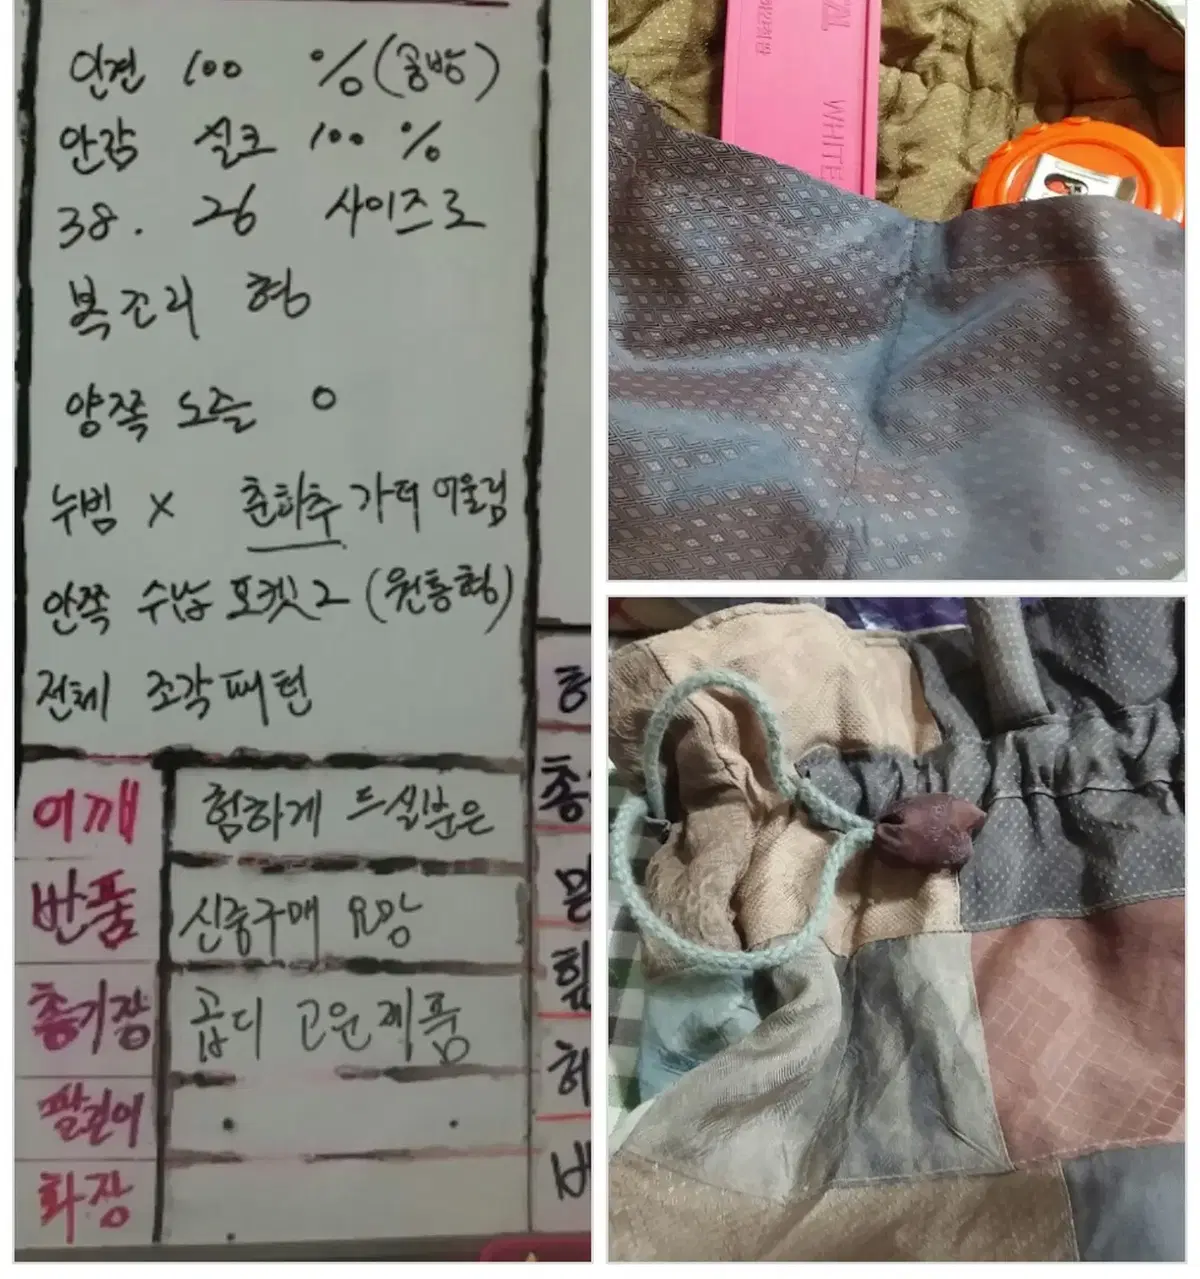 인견 100 %(공방)
안감 실크 100 %
38. 26 사이즈로
복조리 형
양쪽 노즐 O
누빔 X 춘하추 가더 어울림
안쪽 수납 포켓2 (원통형)
전체 조각패턴
어깨 험하게 드실분은
반품 신중구매 요망
총기장 곱디 고운제품
팔길이
화장
WHITE